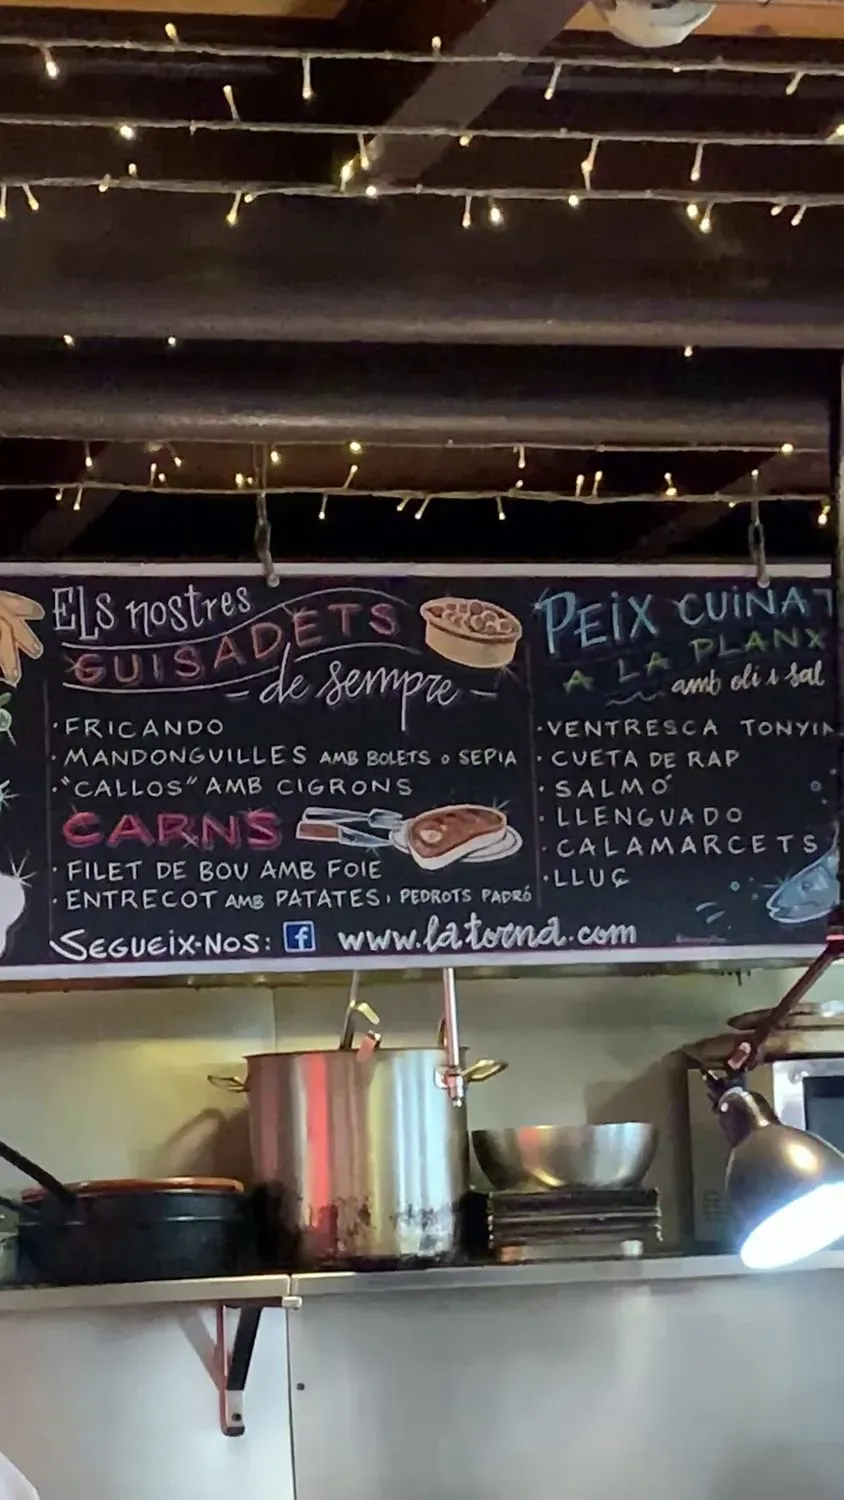 Els nostres
GUISADETS
de sempre
· FRICANDO
· MANDONGUILLES AMB BOLETS o SEPIA
· "CALLOS" AMB CIGRONS
CARNS
· FILET DE BOU AMB FOIE
· ENTRECOT AMB PATATES i PEDROTS PADRÓ
SEGUEIX·NOS: f www.latorna.com
PEIX CUINAT
A LA PLANX
amb oli i sal
· VENTRESCA TONYIN
· CUETA DE RAP
· SALMÓ
· LLENGUADO
· CALAMARCETS
· LLUÇ